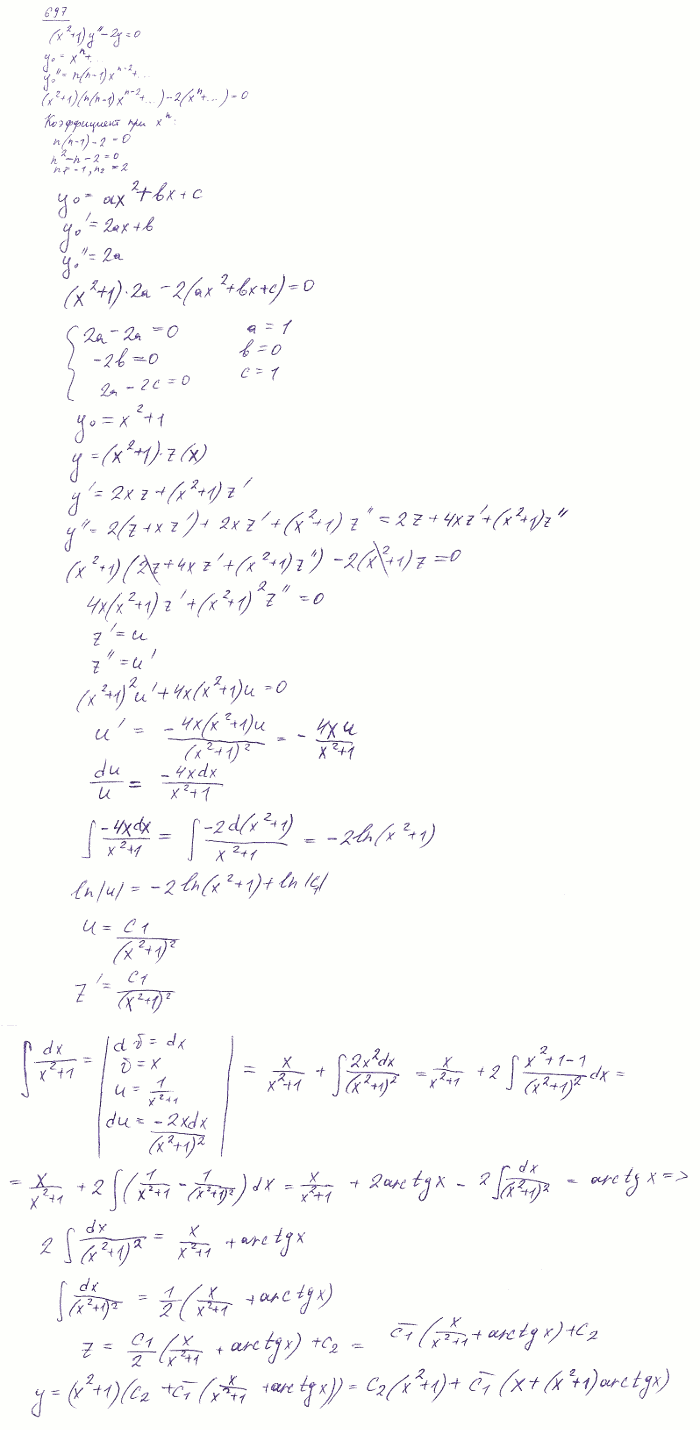 697
(x²+1)y''-2y=0
y₀ = xⁿ+...
y₀'' = n(n-1)xⁿ⁻²+...
(x²+1)(n(n-1)xⁿ⁻²+...)-2(xⁿ+...)=0
Коэффициент при xⁿ:
n(n-1)-2=0
n²-n-2=0
n₁=-1, n₂=2
y₀ = ax²+bx+c
y₀' = 2ax+b
y₀'' = 2a
(x²+1)·2a-2(ax²+bx+c)=0
{ 2a-2a=0 a=1
-2b=0 b=0
2a-2c=0 c=1
y₀ = x²+1
y = (x²+1)·z(x)
y' = 2xz+(x²+1)z'
y'' = 2(z+xz')+2xz'+(x²+1)z'' = 2z+4xz'+(x²+1)z''
(x²+1)(2z+4xz'+(x²+1)z'')-2(x²+1)z=0
4x(x²+1)z'+(x²+1)²z''=0
z'=u
z''=u'
(x²+1)²u'+4x(x²+1)u=0
u' = -4x(x²+1)u/(x²+1)² = -4xu/(x²+1)
du/u = -4xdx/(x²+1)
∫-4xdx/(x²+1) = ∫-2d(x²+1)/(x²+1) = -2ln(x²+1)
ln|u| = -2ln(x²+1)+ln|C₁|
u = C1/(x²+1)²
z' = C1/(x²+1)²
∫dx/(x²+1) = | dv=dx v=x u=1/(x²+1) du=-2xdx/(x²+1)² | = x/(x²+1) + ∫2x²dx/(x²+1)² = x/(x²+1) + 2∫(x²+1-1)/(x²+1)² dx =
= x/(x²+1) + 2∫(1/(x²+1) - 1/(x²+1)²)dx = x/(x²+1) + 2arctgx - 2∫dx/(x²+1)² = arctgx =>
2∫dx/(x²+1)² = x/(x²+1) + arctgx
∫dx/(x²+1)² = 1/2(x/(x²+1) + arctgx)
z = C1/2(x/(x²+1) + arctgx)+C₂ = C̄1(x/(x²+1)+arctgx)+C₂
y = (x²+1)(C₂+C̄1(x/(x²+1)+arctgx)) = C₂(x²+1)+C̄1(x+(x²+1)arctgx)